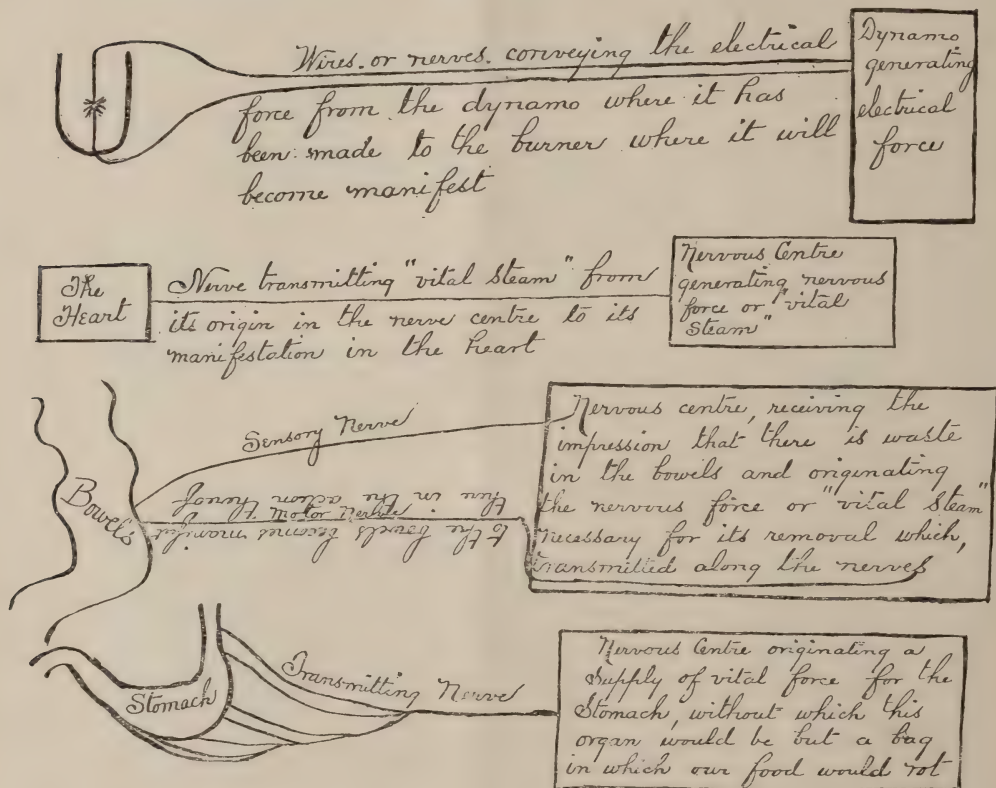 Wires or nerves conveying the electrical
force from the dynamo where it has
been made to the burner where it will
become manifest
Dynamo
generating
electrical
force
The
Heart
Nerve transmitting "vital steam" from
its origin in the nerve centre to its
manifestation in the heart
Nervous Centre
generating nervous
force or "vital
Steam"
Bowels
Sensory Nerve
Nervous centre, receiving the
impression that there is waste
in the bowels and originating
the nervous force or "vital steam"
necessary for its removal which,
transmitted along the nerves
to the bowels becomes manifest
Motor Nerve
in the action
Stomach
Transmitting Nerve
Nervous Centre originating a
Supply of vital force for the
Stomach, without which this
organ would be but a bag
in which our food would rot